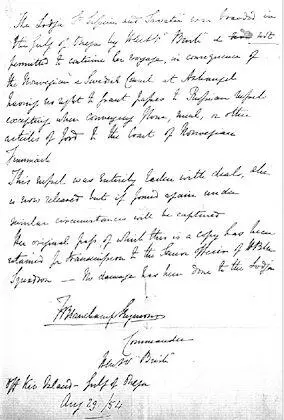 The Lodja St. and was boarded in
the Gulf of Onega by Ship & not
permitted to continue her voyage, in consequence of
the Norwegian & Swedish Consul at Archangel
having no right to grant passes to Russian vessel
excepting when conveying flour, meal, or other
articles of food to the Coast of Norwegian
Finmark
This vessel was entirely laden with deals, she
is now released but if found again under
similar circumstances will be captured
Her original pass of which this is a copy has been
retained for transmission to the Senior officer of
Squadron — No damage has been done to the Lodja
F Beauchamp Seymour
Commander
off Kio Island – Gulf of Onega
Aug 29 /54